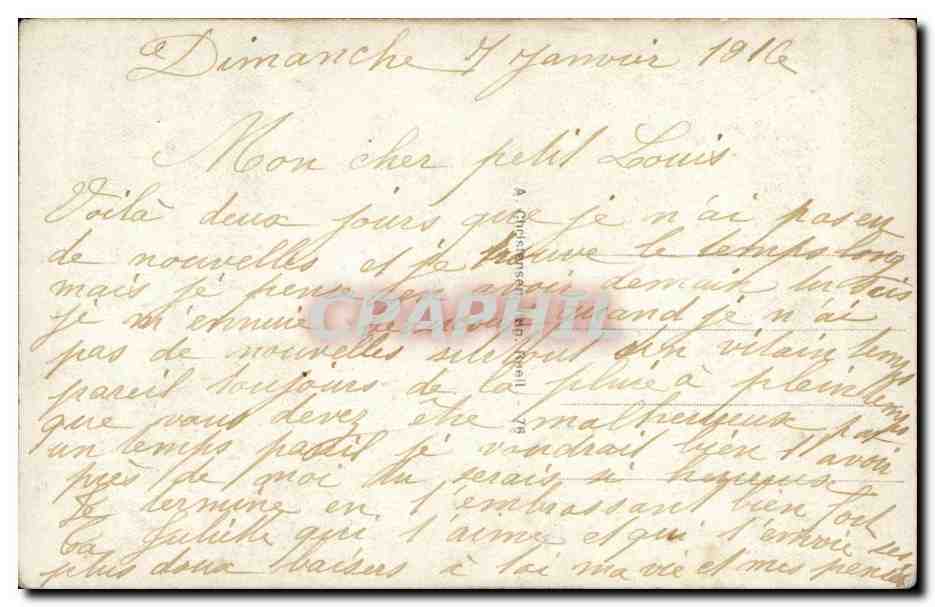 Ce Dimanche 7 Janvier 1916
Mon cher petit Louis
Voilà deux jours que je n'ai pas eu
de nouvelles et je trouve le temps long
mais je pense en avoir demain tu sais
je m'ennuie de vous quand je n'ai
pas de nouvelles surtout un vilain temps
pareil toujours de la pluie à plein temps
que vous devez être malheureux par
un temps pareil je voudrait bien t'avoir
près de moi tu serais si heureux
Je termine en t'embrassant bien fort
ta Juliette qui t'aime et qui t'envoie ses
plus doux baisers à toi ma vie et mes pensées
A. Christensen
76
CPAPHIL